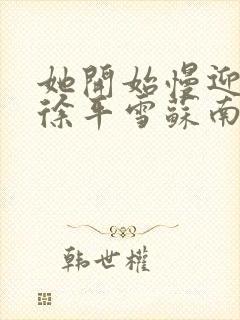 她開始慢迎
徐平雪蘇南
韩世權